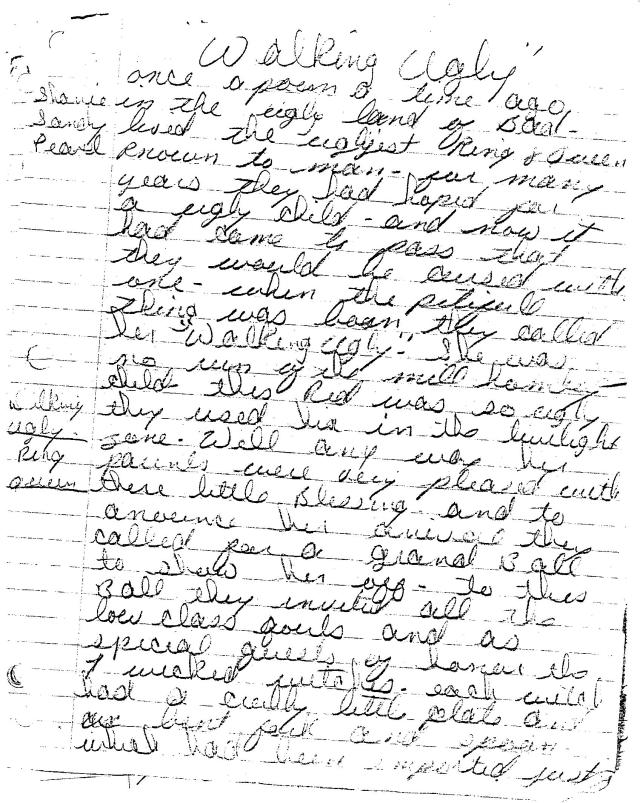 "Walking Ugly"
once a poem a time ago
in the ugly land of Bad-
Shanie
Sandy lived the ugliest King & Queen
Peard known to man- for many
years they had hoped for
a ugly child- and now it
had came to pass that
they would be cursed with
one- when the
thing was born they called
her "Walking Ugly". She was
no run of the mill homley
child- this kid was so ugly
they used her in the twilight
zone. Well any way her
parents were very pleased with
there little Blessing- and to
anounce her arrival they
called for a grand Ball
to show her off- to this
Ball they invited all the
low class gouls and as
special guests of honor the
7 wicked witches- each witch
had a little plate and
bent fork and spoon
what had been imported just
Walking
Ugly
King
queen